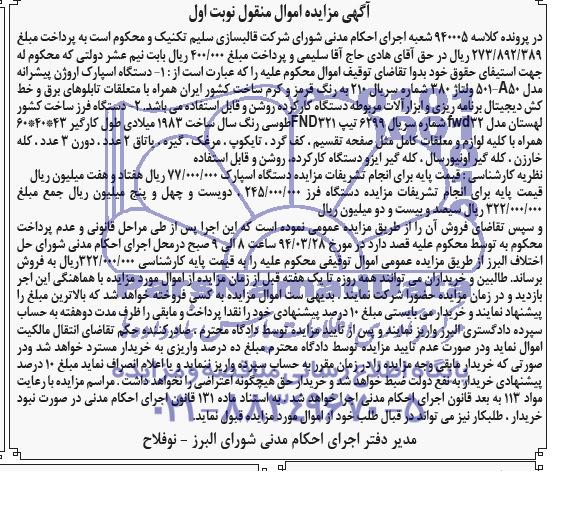 آگهی مزایده اموال منقول نوبت اول
در پرونده کلاسه ۹۴۰۰۰۵ شعبه اجرای احکام مدنی شورای شرکت قالبسازی سلیم تکنیک و محکوم است به پرداخت مبلغ
۲۷۳/۸۹۲/۳۸۹ ریال در حق آقای هادی حاج آقا سلیمی و پرداخت مبلغ ۴۰۰/۰۰۰ ریال بابت نیم عشر دولتی که محکوم له
جهت استیفای حقوق خود بدوا تقاضای توقیف اموال محکوم علیه را که عبارت است از : ۱- دستگاه اسپارک اروژن پیشرانه
مدل A۵۰-۵۰۱ ولتاژ ۳۸۰ شماره سریال ۲۱۰ به رنگ قرمز و کرم ساخت کشور ایران همراه با متعلقات تابلوهای برق و خط
کش دیجیتال برنامه ریزی و ابزار آلات مربوطه دستگاه کارکرده روشن و قابل استفاده می باشد. ۲- دستگاه فرز ساخت کشور
لهستان مدل fwd۳۲ شماره سریال ۶۲۹۹ تیپ FND۳۲۱ طوسی رنگ سال ساخت ۱۹۸۳ میلادی طول کارگیر ۴۳*۴۰*۶۰
همراه با کلیه لوازم و متعلقات کامل مثل صفحه تقسیم ، کف گرد ، تایکوپ ، مرغک ، گیره ، یاتاق ۲ عدد ، دورن ۳ عدد ، کله
خارزن ، کله گیر اونیورسال ، کله گیر ایزو دستگاه کارکرده، روشن و قابل استفاده
نظریه کارشناسی : قیمت پایه برای انجام تشریفات مزایده دستگاه اسپارک ۷۷/۰۰۰/۰۰۰ ریال هفتاد و هفت میلیون ریال
قیمت پایه برای انجام تشریفات مزایده دستگاه فرز ۲۴۵/۰۰۰/۰۰۰ ، دویست و چهل و پنج میلیون ریال جمع مبلغ
۳۲۲/۰۰۰/۰۰۰ ریال سیصد و بیست و دو میلیون ریال
و سپس تقاضای فروش آن را از طریق مزایده عمومی نموده است که این اجرا پس از طی مراحل قانونی و عدم پرداخت
محکوم به توسط محکوم علیه قصد دارد در مورخ ۹۴/۰۳/۲۸ ساعت ۸ الی ۹ صبح درمحل اجرای احکام مدنی شورای حل
اختلاف البرز از طریق مزایده عمومی اموال توقیفی محکوم علیه را به قیمت پایه کارشناسی ۳۲۲/۰۰۰/۰۰۰ ریال به فروش
برساند. طالبین و خریداران می توانند همه روزه تا یک هفته قبل از زمان مزایده از اموال مورد مزایده با هماهنگی این اجر
بازدید و در زمان مزایده حضورا شرکت نمایند . بدیهی ست اموال مزایده به کسی فروخته خواهد شد که بالاترین مبلغ را
پیشنهاد نمایند و خریدار می بایستی مبلغ ۱۰ درصد پیشنهادی خود را نقدا پرداخت و مابقی را ظرف مدت دوهفته به حساب
سپرده دادگستری البرز واریز نمایند و پس از تایید مزایده توسط دادگاه محترم ، صادر کننده حکم تقاضای انتقال مالکیت
اموال نماید ودر صورت عدم تایید مزایده توسط دادگاه محترم مبلغ ده درصد واریزی به خریدار مسترد خواهد شد ودر
صورتی که خریدار مابقی وجه مزایده را در زمان مقرر به حساب سپرده واریز ننماید و یا اعلام انصراف نماید مبلغ ۱۰ درصد
پیشنهادی خریدار به نفع دولت ضبط خواهد شد و خریدار حق هیچگونه اعتراضی را نخواهد داشت . مراسم مزایده با رعایت
مواد ۱۱۳ به بعد قانون اجرای احکام مدنی اجرا خواهد شد . به استناد ماده ۱۳۱ قانون اجرای احکام مدنی در صورت نبود
خریدار ، طلبکار نیز می تواند در قبال طلب خود از اموال مورد مزایده قبول نماید.
مدیر دفتر اجرای احکام مدنی شورای البرز - نوفلاح
۰۲۱-۸۸۳۴۹۶۷۰-۵